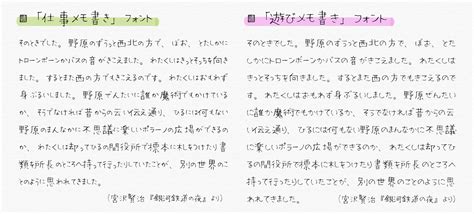 「仕事メモ書き」フォント
そのときでした。野原のずうっと西北の方で、ぼお、とたしかに
トローンボーンかバスの音がきこえました。わたくしはきっとそっちを向き
ました。するとまた西の方でもきこえるのです。わたくしはおもわず
身ぶるいしました。野原ぜんたいに誰か魔術でもかけている
か、そうでなければ昔からの云い伝え通り、ひるには何もない
野原のまんなかに不思議に楽しいポラーノの広場ができるの
か、わたくしは却ってひるの間役所で標本に札をつけたり書
類を所長のところへ持って行ったりしていたことが、別の世界のこ
とのように思われてきました。
(宮沢賢治『銀河鉄道の夜』より)
「遊びメモ書き」フォント
そのときでした。野原のずうっと西北の方で、ぼお、とた
しかにトローンボーンかバスの音がきこえました。わたくしは
きっとそっちを向きました。するとまた西の方でもきこえるので
す。わたくしはおもわず身ぶるいしました。野原ぜんたい
に誰か魔術でもかけているか、そうでなければ昔からの云
い伝え通り、ひるには何もない野原のまんなかに不思議に
楽しいポラーノの広場ができるのか、わたくしは却ってひ
るの間役所で標本に札をつけたり書類を所長のところへ
持って行ったりしていたことが、別の世界のことのように思
われてきました。
(宮沢賢治『銀河鉄道の夜』より)